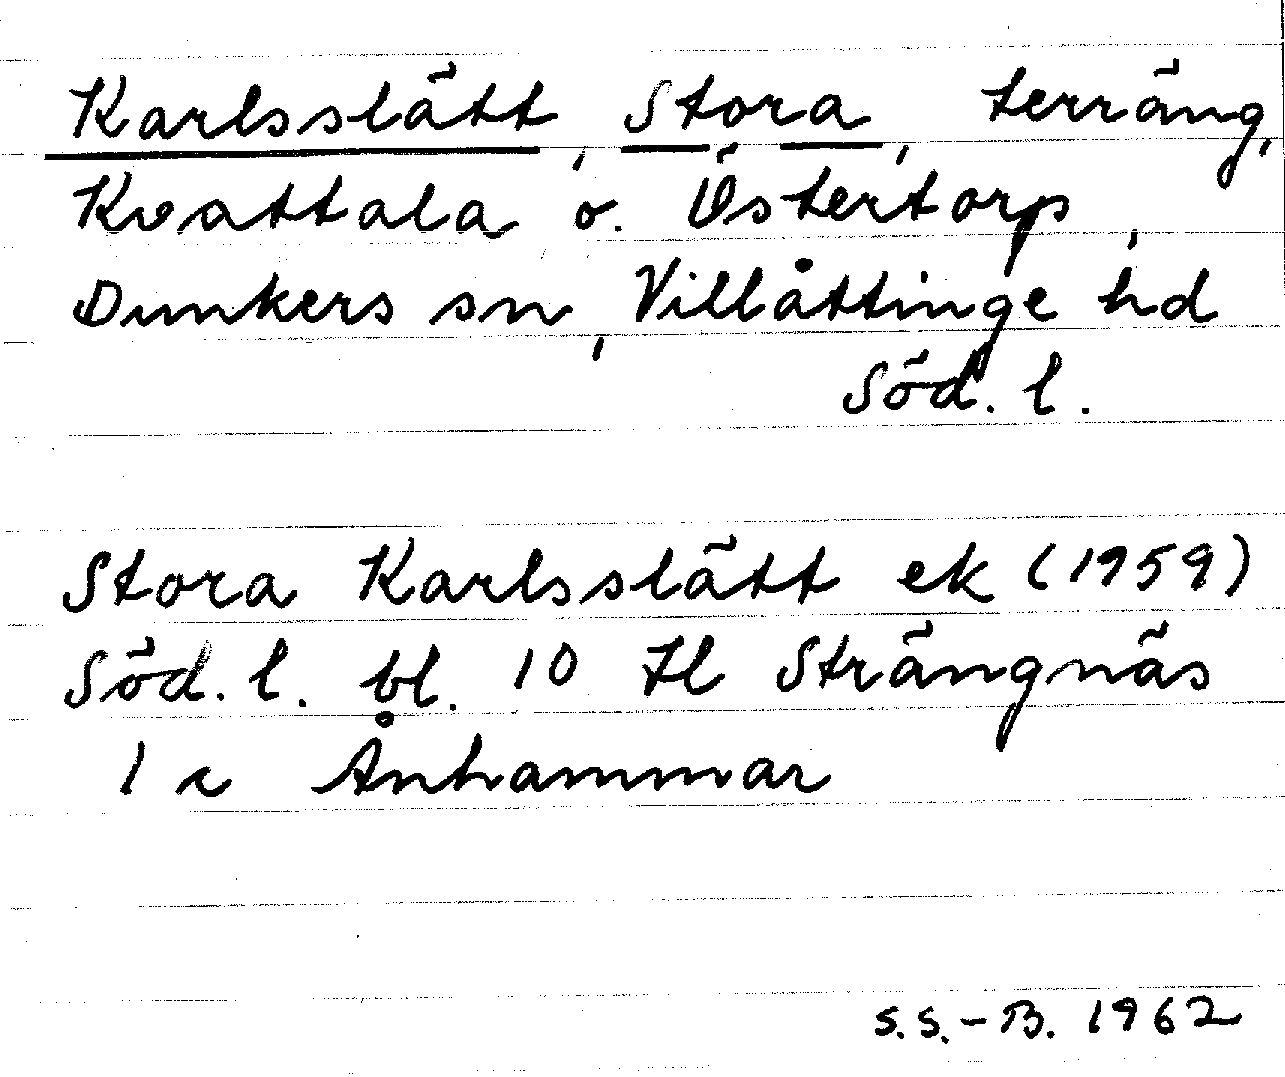 Karlsslätt, Stora, terräng,
Kvattala o. Östertorp,
Dunkers sn, Villåttinge hd
Söd. l.
Stora Karlsslätt ek (1959)
Söd. l. bl. 10 H Strängnäs
1 c Ånhammar
S.S.-B. 1962